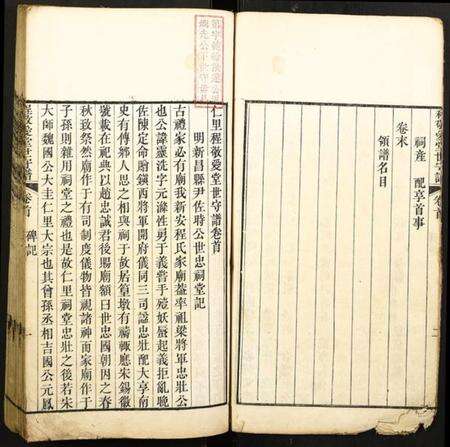 祠產 配享首事
卷末
領譜名目
仁里程敬愛堂世守譜卷首
明新昌縣尹佐時公世忠祠堂記
古禮家必有廟我新安程氏家廟蓋率祖梁將軍忠壯公
也公諱靈洗字元滌性勇于義嘗手殪妖蜃起義拒亂晚
佐陳定命削鎮西將軍開府儀同三司諡忠壯配大享南
史有傳鄉人思之相與祠于故居篁墩有禱輒應朱錫徽
號載在祀典以趙忠誠君後賜廟額曰世忠國朝因之春
秋致祭然廟作于有司制度儀物皆視諸神而家廟作于
子孫則雜用祠堂之禮也是故仁里祠堂忠壯之後若宋
大師魏國公大圭仁里大宗也其曾孫丞相吉國公元鳳
程敬愛堂世守譜 卷首 碑記 一